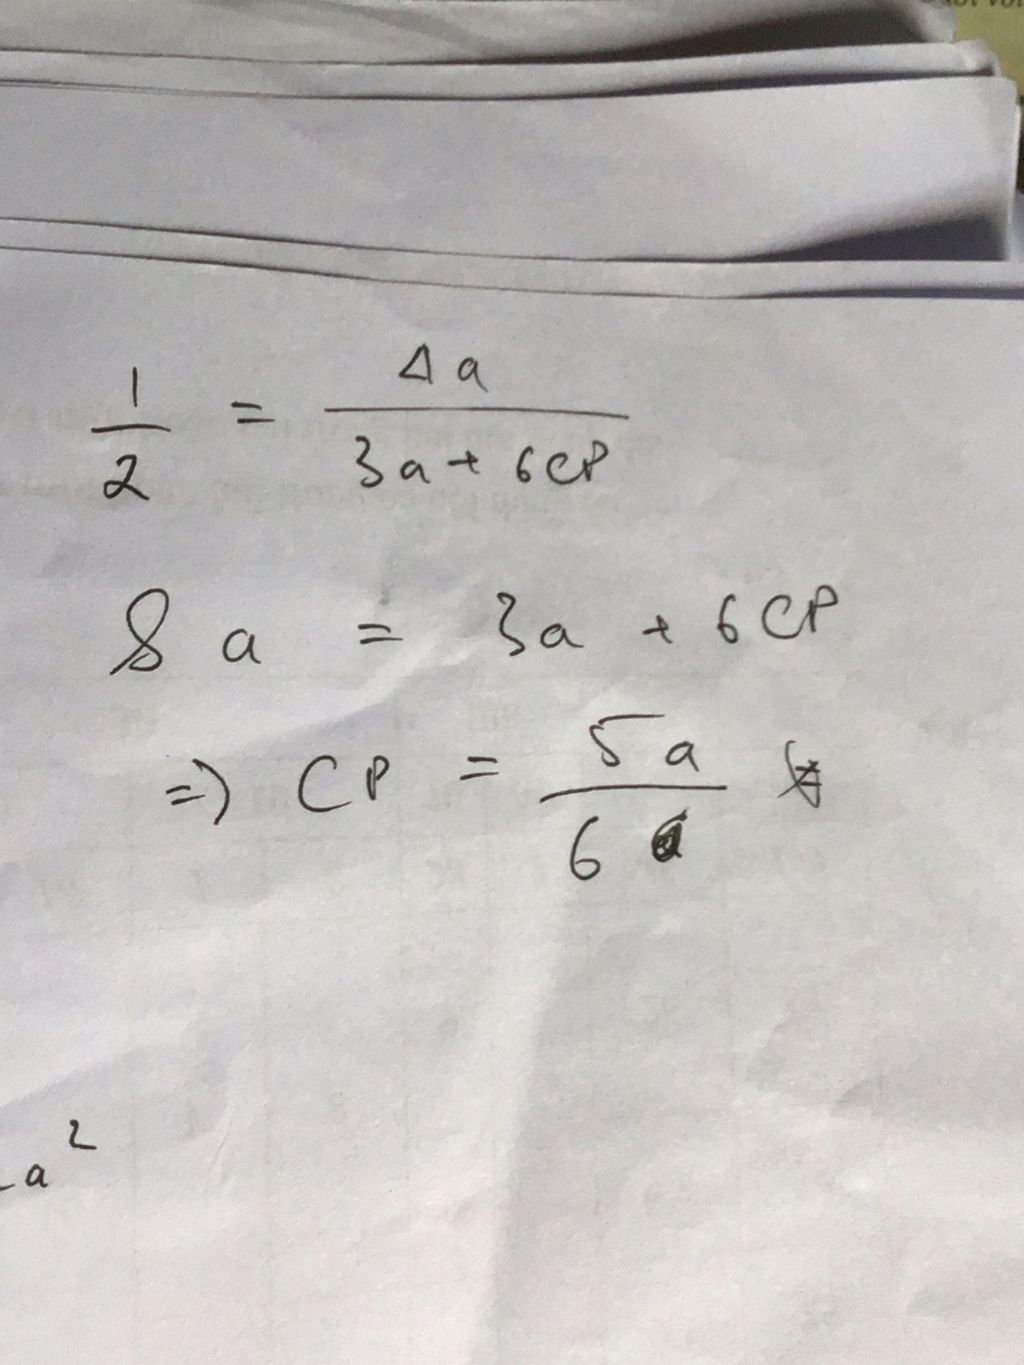 1/2 = 4a/(3a + 6CP)
8a = 3a + 6CP
=> CP = 5a/6
a²